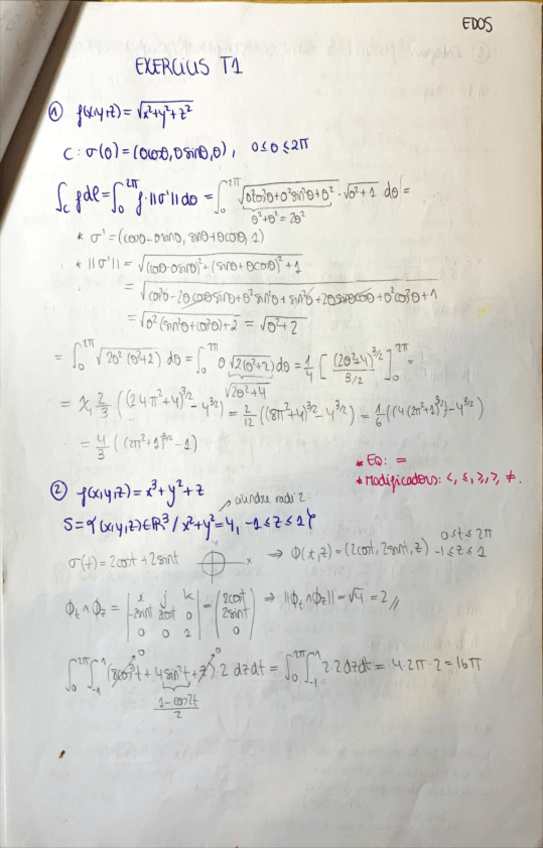 EDOS
EXERCICIS T1
① f(x,y,z) = √(x²+y²+z²)
C: σ(θ) = (θcosθ, θsinθ, θ), 0 ≤ θ ≤ 2π
∫_C f dl = ∫₀^2π f·||σ'|| dθ = ∫₀^2π √(θ²cos²θ+θ²sin²θ+θ²) · √(θ²+1) dθ =
θ²+θ² = 2θ²
* σ' = (cosθ-θsinθ, sinθ+θcosθ, 1)
* ||σ'|| = √((cosθ-θsinθ)²+(sinθ+θcosθ)²+1)
= √(cos²θ-2θcosθsinθ+θ²sin²θ+sin²θ+2θsinθcosθ+θ²cos²θ+1)
= √(θ²(sin²θ+cos²θ)+2) = √(θ²+2)
= ∫₀^2π √(2θ²(θ²+2)) dθ = ∫₀^2π θ √(2(θ²+2)) dθ = 1/4 [(2θ²+4)^3/2 / 3/2]₀^2π =
√(2θ²+4)
= 1/4 2/3 ((2·4π²+4)^3/2 - 4^3/2) = 2/12 ((8π²+4)^3/2 - 4^3/2) = 1/6 ((4(2π²+1)^3/2) - 4^3/2)
= 4/3 ((2π²+1)^3/2 - 1)
* EQ: =
* Modificadors: <, ≤, ≥, >, ≠.
② f(x,y,z) = x³+y²+z
cilindre radi 2
S = {(x,y,z)∈ℝ³ / x²+y²=4, -1≤z≤1}
σ(t) = 2cost + 2sint ⇒ Φ(t,z) = (2cost, 2sint, z) 0≤t≤2π
-1≤z≤1
Φt ∧ Φz = | i j k | -2sint 2cost 0 | 0 0 1 | = (2cost 2sint 0) ⇒ ||Φt ∧ Φz|| = √4 = 2 //
∫₀^2π ∫₋₁^1 (8cos³t + 4sin²t + z) · 2 dzdt = ∫₀^2π ∫₋₁^1 2·2 dzdt = 4·2π·2 = 16π
1-cos2t / 2